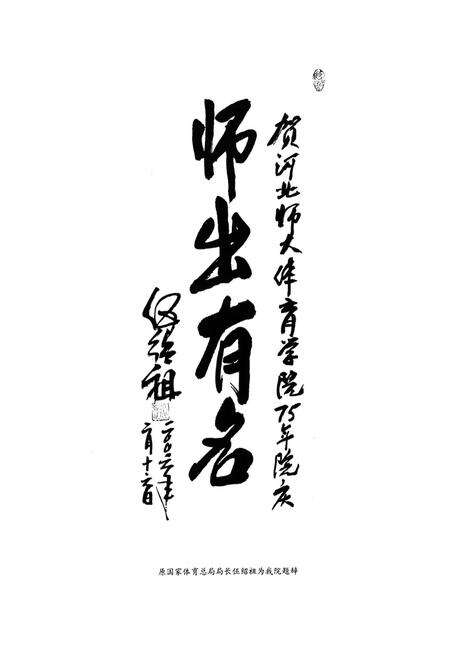 贺河北师大体育学院75年院庆
师出有名
伍绍祖
二〇〇六年
二月十二日
原国家体育总局局长伍绍祖为我院题辞